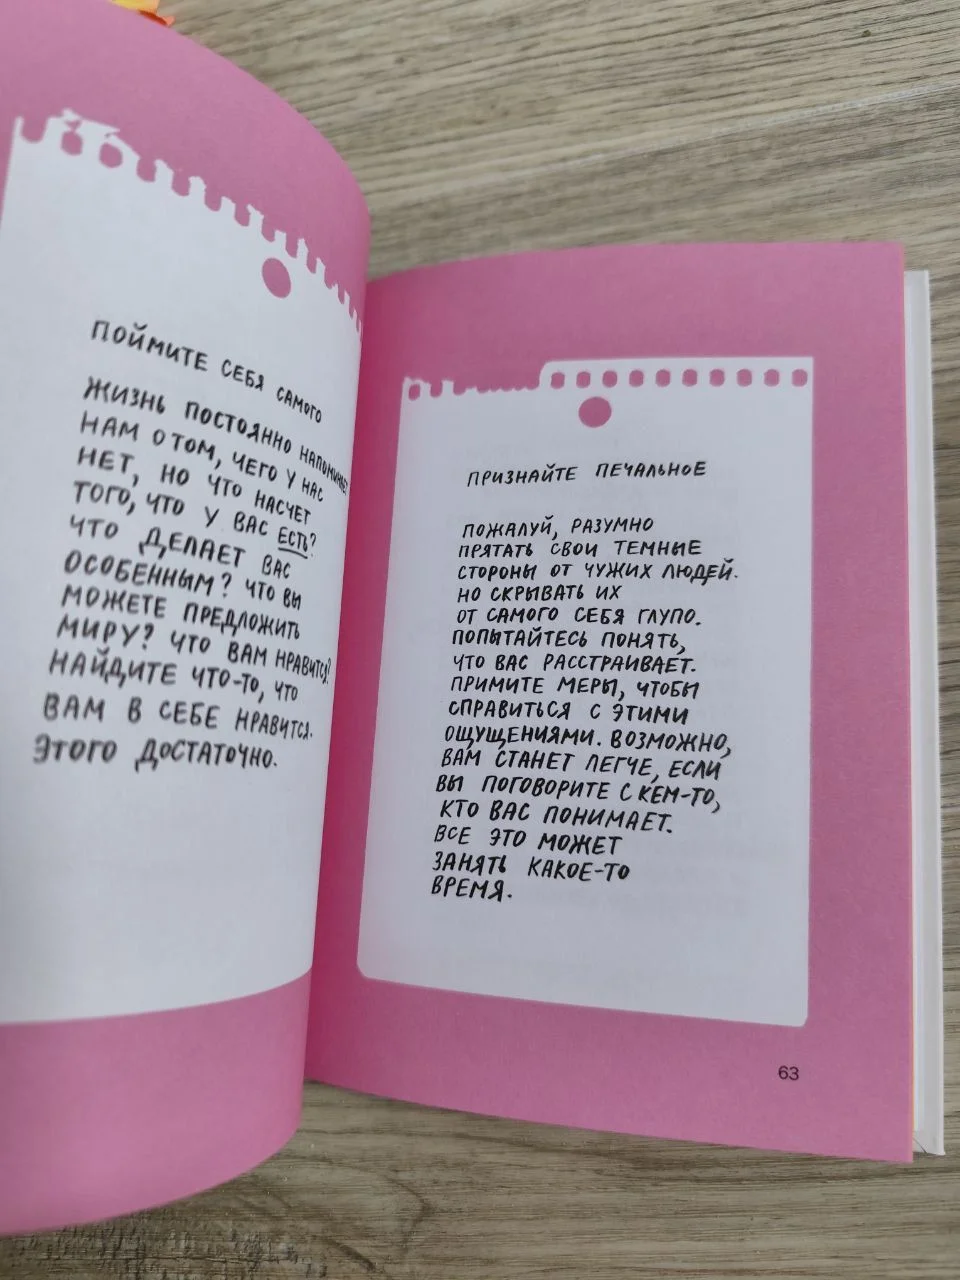 ПОЙМИТЕ СЕБЯ САМОГО
ЖИЗНЬ ПОСТОЯННО НАПОМИНАЕТ
НАМ О ТОМ, ЧЕГО У НАС
НЕТ, НО ЧТО НАСЧЕТ
ТОГО, ЧТО У ВАС ЕСТЬ?
ЧТО ДЕЛАЕТ ВАС
ОСОБЕННЫМ? ЧТО ВЫ
МОЖЕТЕ ПРЕДЛОЖИТЬ
МИРУ? ЧТО ВАМ НРАВИТСЯ?
НАЙДИТЕ ЧТО-ТО, ЧТО
ВАМ В СЕБЕ НРАВИТСЯ.
ЭТОГО ДОСТАТОЧНО.
ПРИЗНАЙТЕ ПЕЧАЛЬНОЕ
ПОЖАЛУЙ, РАЗУМНО
ПРЯТАТЬ СВОИ ТЕМНЫЕ
СТОРОНЫ ОТ ЧУЖИХ ЛЮДЕЙ.
НО СКРЫВАТЬ ИХ
ОТ САМОГО СЕБЯ ГЛУПО.
ПОПЫТАЙТЕСЬ ПОНЯТЬ,
ЧТО ВАС РАССТРАИВАЕТ.
ПРИМИТЕ МЕРЫ, ЧТОБЫ
СПРАВИТЬСЯ С ЭТИМИ
ОЩУЩЕНИЯМИ. ВОЗМОЖНО,
ВАМ СТАНЕТ ЛЕГЧЕ, ЕСЛИ
ВЫ ПОГОВОРИТЕ С КЕМ-ТО,
КТО ВАС ПОНИМАЕТ.
ВСЕ ЭТО МОЖЕТ
ЗАНЯТЬ КАКОЕ-ТО
ВРЕМЯ.
63